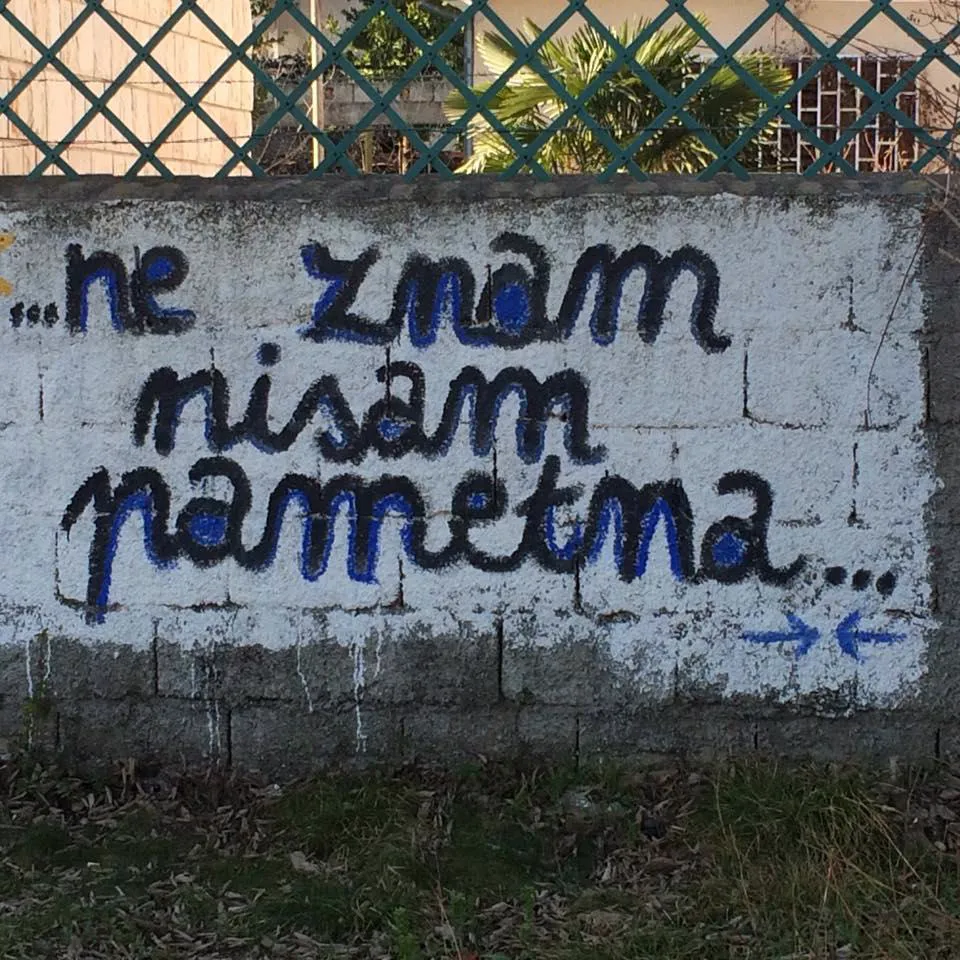 ...ne znam
nisam
pametna...